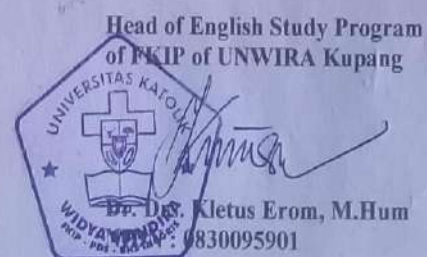 Head of English Study Program
of FKIP of UNWIRA Kupang
UNIVERSITAS KATOLIK
WIDYA MANDIRA
Dr. Drs. Kletus Erom, M.Hum
: 0830095901